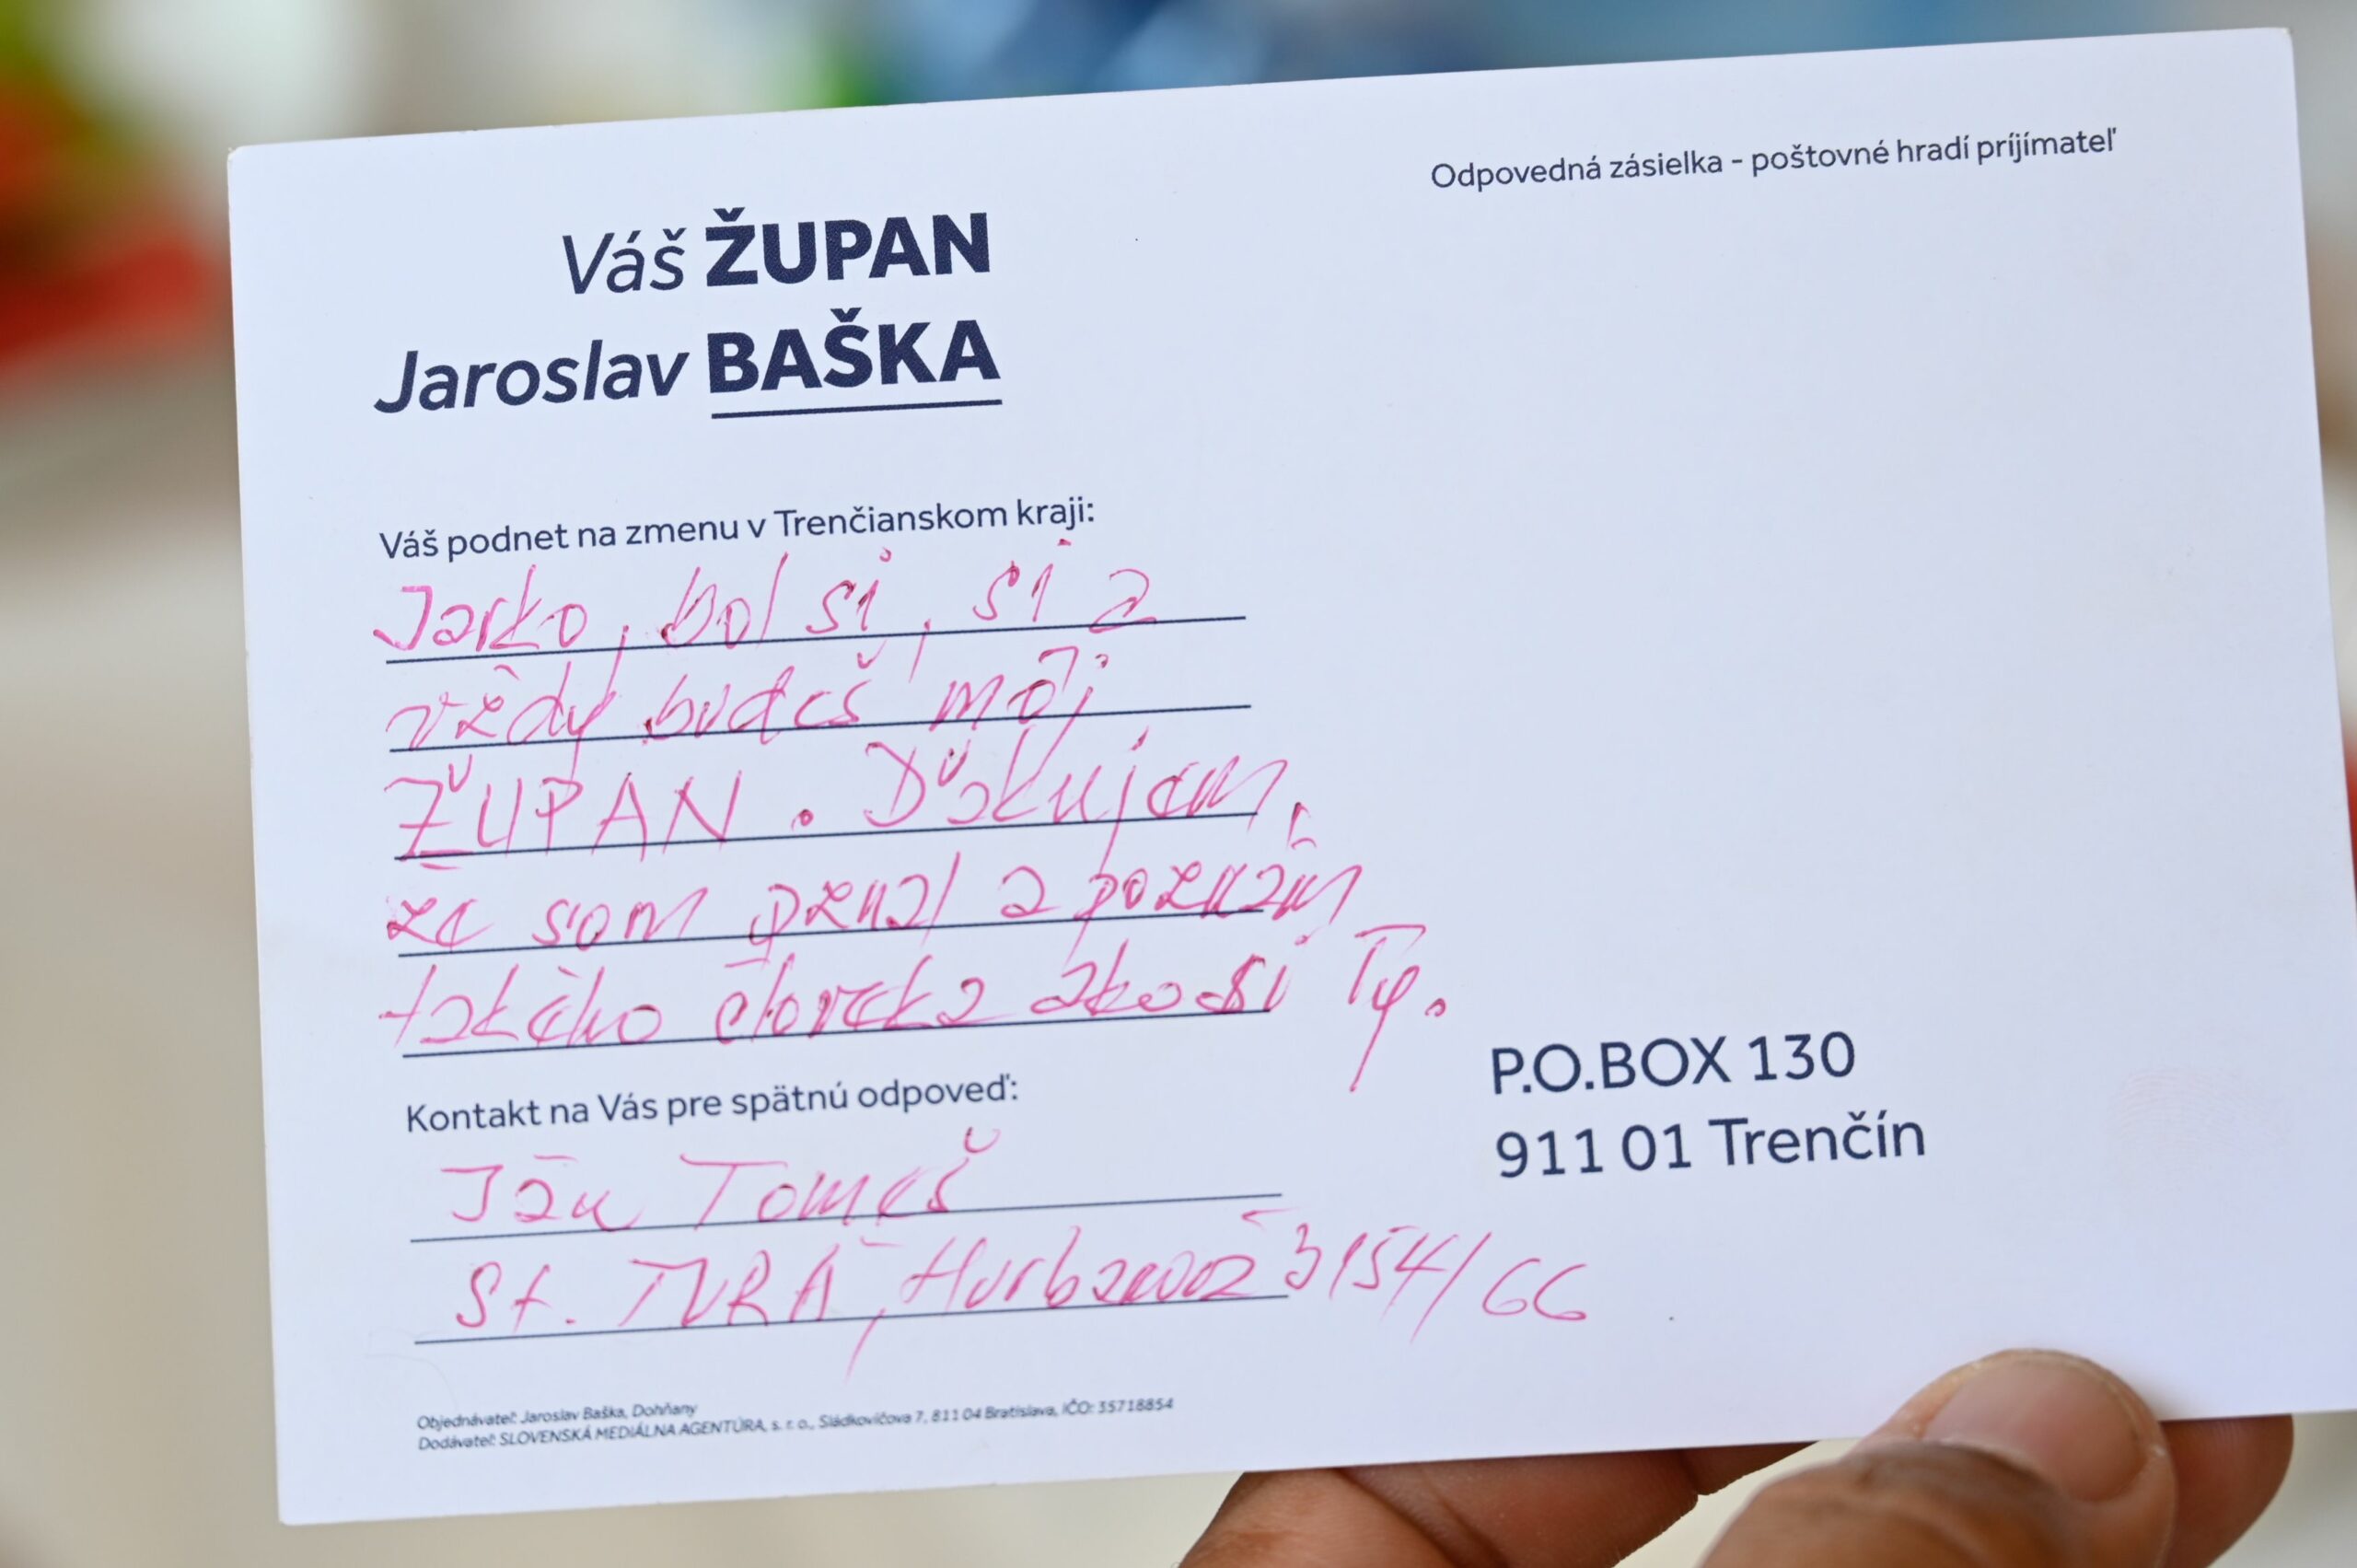 Odpovedná zásielka - poštovné hradí príjímateľ
Váš ŽUPAN
Jaroslav BAŠKA
Váš podnet na zmenu v Trenčianskom kraji:
Jarko, bol si, si a
vždy budeš môj
ŽUPAN. Ďakujem,
že som poznal a poznám
takého človeka ako si Ty.
Kontakt na Vás pre spätnú odpoveď:
Ján Tomeš
St. TURÁ, Hurbanova 3154/66
P.O.BOX 130
911 01 Trenčín
Objednávateľ: Jaroslav Baška, Dohňany
Dodávateľ: SLOVENSKÁ MEDIÁLNA AGENTÚRA, s. r. o., Sládkovičova 7, 811 04 Bratislava, IČO: 35718854